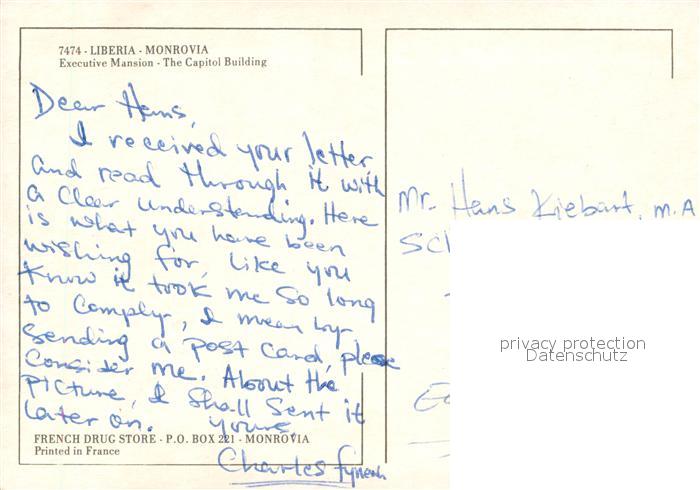 7474 - LIBERIA - MONROVIA
Executive Mansion - The Capitol Building
Dear Hans,
I received your letter
and read through it with
a clear understanding. Here
is what you have been
wishing for, like you
know it took me so long
to comply, I mean by
sending a post card, please
consider me. About the
picture, I shall sent it
later on. yours,
Charles
FRENCH DRUG STORE - P.O. BOX 221 - MONROVIA
Printed in France
Mr. Hans Kiebart, M.A
privacy protection
Datenschutz